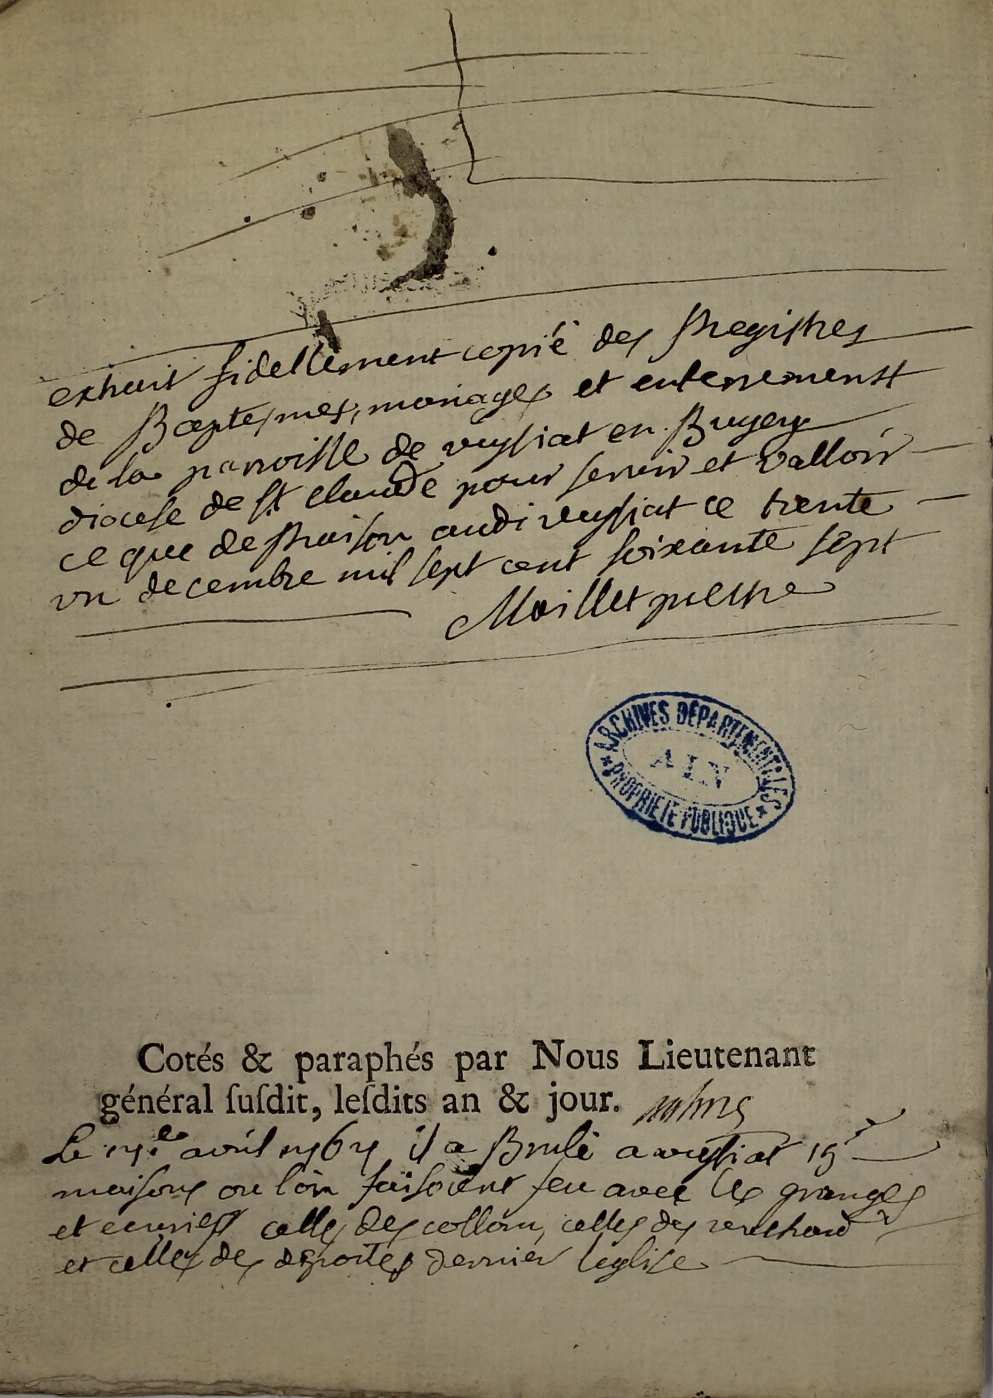 extrait fidellement copié des Registres
de Baptesmes, mariages et enterrements
de la parroisse de veysiat en Bugey
diocese de st claude pour servir et valloir
ce que de Raison audi veysiat ce trente
un decembre mil sept cent soixante sept
Maillet prestre
ARCHIVES DÉPARTEMENTALES
AIN
PROPRIÉTÉ PUBLIQUE
Cotés & paraphés par Nous Lieutenant
général ſuſdit, leſdits an & jour.
Le avril il a Brulé a veysiat 15
maisons ou lon faisoient feu avec les granges
et ecuries celles des collom, celles des
et celles des derrier leglise